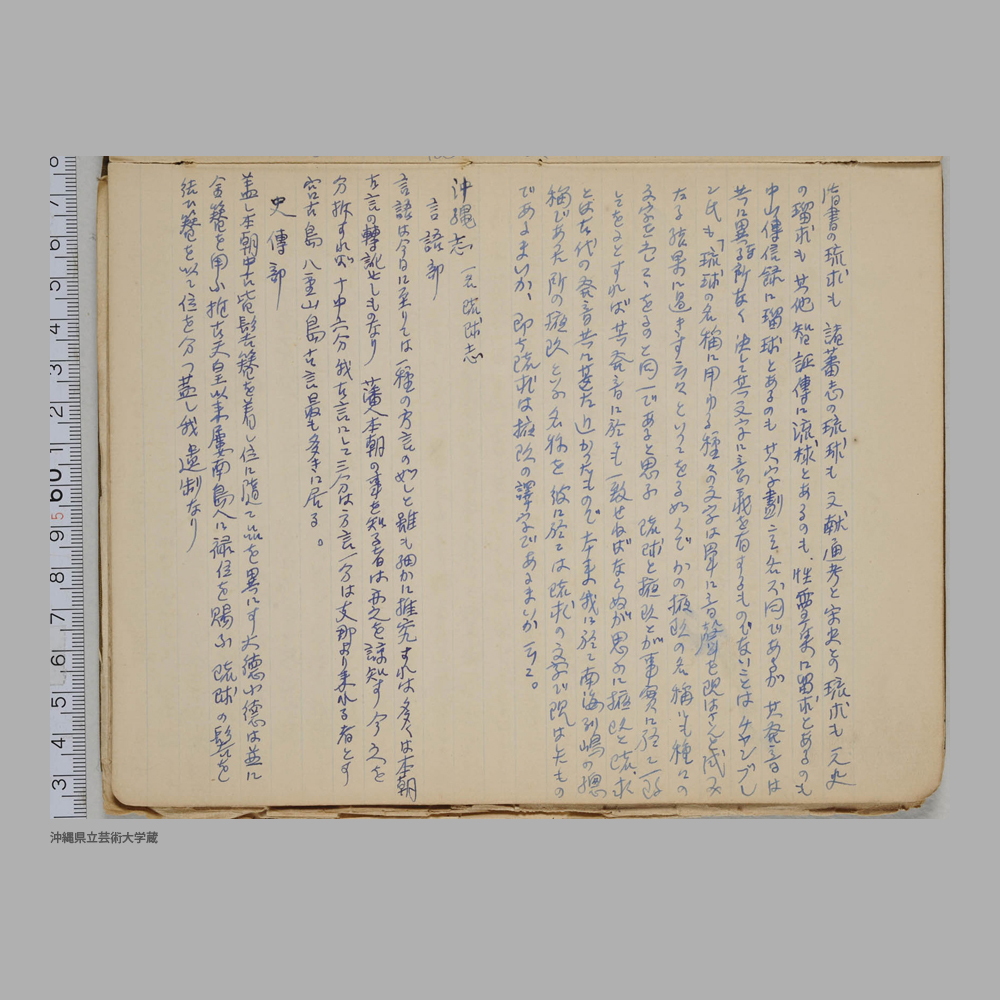 隋書の琉求も 諸蕃志の琉球も 文献通考と宋史との琉求も 元史
の瑠求も 其他智証傳に流梂とあるのも、性霊集に留求とあるのも
中山傳信録に瑠球とあるのも 其字劃こそ各不同であるが 其発音は
共に異る所なく 決して其文字に意義を有するものでないことは チャンブレ
ン氏も「琉球の名稱に用ゆる種々の文字は単に音聲を現はさんと試み
たる結果に過ぎず云々といつてをる如くでかの掖玖の名稱にも種々の
文字をもつてをると同一であると思ふ 琉球と掖玖とが事実に於て一所
とすれば其発音に於ても一致せねばならぬが思ふに掖玖と琉求
とは古代の発音共に甚だ近かつたもので 本来我に於て南海列嶋の總
稱であつた所の掖玖といふ名称を 彼に於ては琉求の文字で現はしたもの
であるまいか、即ち琉求は掖玖の譯字であるまいか云々。
沖縄志 一名琉球志
言語部
言語は今日に至りては一種の方言の如しと雖も細かに推究すれは多くは本朝
古言の轉訛せしものなり 藩人本朝の事を知る者は亦之を諒知す 今之を
分拆すれば 十中六分 我古言にして三分は方言一分は支那より来れる者とす
宮古島 八重山島 古言最も多きに居る。
史傳部
蓋し本朝中古皆髻簪を着し位に随て品を異にす大徳小徳は並に
金簪を用ふ推古天皇以来屢南島人に禄位を賜ふ 琉球の髻を
結ひ簪を以て位を分つ蓋し我遺制なり
8 7 6 5 4 3 2 1 60 9 8 7 6 5 4 3
沖縄県立芸術大学蔵